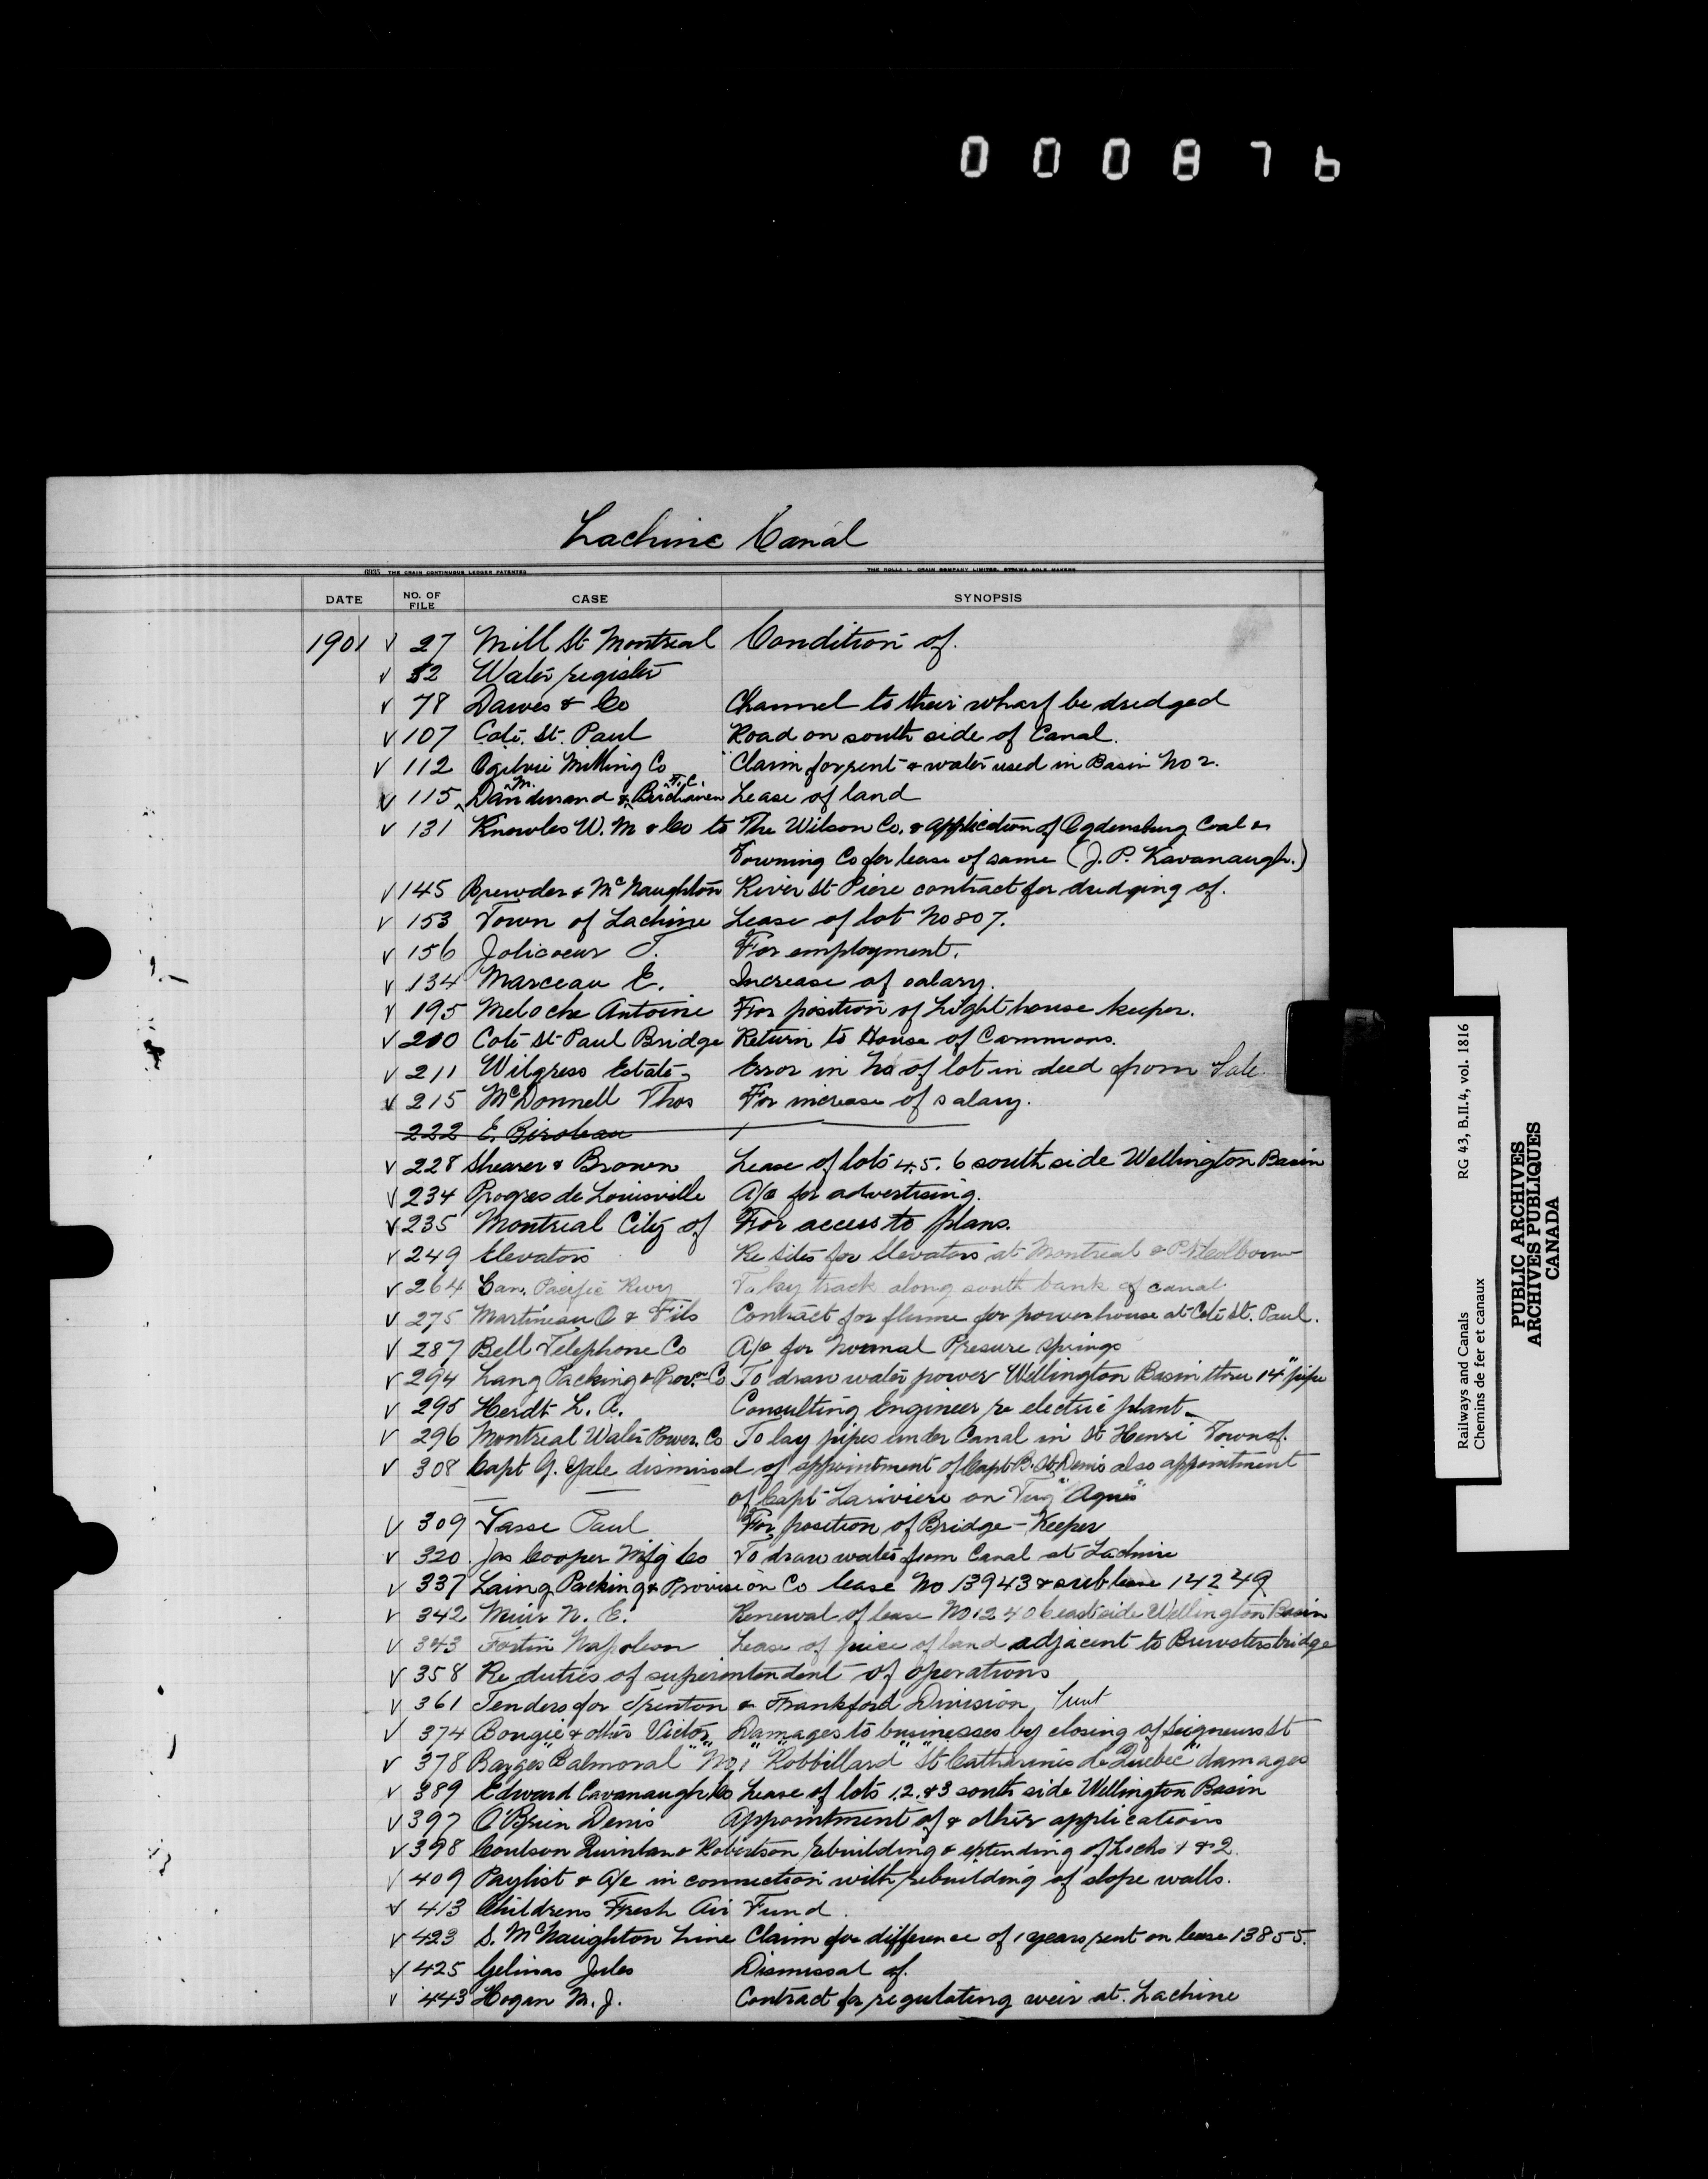 000876
Lachine Canal
6935 THE CRAIN CONTINUOUS LEDGER PATENTED
DATE NO. OF FILE CASE SYNOPSIS
1901 √ 27 Mill St Montreal Condition of.
√ 32 Water register
√ 78 Dawes & Co Channel to their wharf be dredged
√ 107 Coté. St. Paul Road on south side of Canal.
√ 112 Ogilvie Milling Co Claim for rent & water used in Basin No 2.
√ 115 M. Dandurand & F. C. Lease of land
√ 131 Knowles W. M & Co to The Wilson Co. & application of Ogdensburg Coal &
Towning Co for lease of same (J. P. Kavanaugh.)
√ 145 Brewder & McNaughton River St Piere contract for dredging of.
√ 153 Town of Lachine Lease of lot No 807.
√ 156 Jolicoeur J. For employment.
√ 134 Marceau E. Increase of salary.
√ 195 Meloche Antoine For position of Light house keeper.
√ 200 Coté St Paul Bridge Return to House of Commons.
√ 211 Wilgress Estate Error in No of lot in deed from Sale.
√ 215 McDonnell Thos For increase of salary.
222 E.
√ 228 Shearer & Brown Lease of lots 4.5.6 south side Wellington Basin
√ 234 Progres de Louisville A/c for advertising.
√ 235 Montreal City of For access to plans.
√ 249 Elevators Re Sites for Elevators at Montreal & Pt Colborne
√ 264 Can. Pacific Rwy To lay track along south bank of canal.
√ 275 Martineau O & Fils Contract for flume for powerhouse at Coté St. Paul.
√ 287 Bell Telephone Co A/c for Normal Presure Springs
√ 294 Lang Packing & Provon Co To draw water power Wellington Basin three 14" pipe
√ 295 Herdt L. A. Consulting Engineer re electric plant
√ 296 Montreal Water Power. Co To lay pipes under Canal in St Henri Town of.
√ 308 Capt G. Yale dismissal of appointment of Capt B. St Denis also appointment
of Capt Lariviere on Tug "Agnes"
√ 309 Tasse Paul For position of Bridge-Keeper
√ 320 Jas Cooper Mfg Co To draw water from Canal at Lachine
√ 337 Laing Packing & Provision Co lease No 13943 & sub lease 14249
√ 342 Muir N. E. Renewal of lease No 12406 east side Wellington Basin
√ 343 Fortin Napoleon Lease of piece of land adjacent to Brewsters bridge
√ 358 Re duties of superintendent of operations
√ 361 Tenders for Trenton & Frankford Division, Trent
√ 374 Bougie & others Victor Damages to businesses by closing of Seigneurs St
√ 378 Barges "Balmoral" "No 1" "Robbillard" "St Catharines de Quebec" damages
√ 389 Edward Cavanaugh Co Lease of lots 1.2.&3 south side Wellington Basin
√ 397 O'Brien Denis Appointment of & other applications
√ 398 Coulson Quinlan & Robertson rebuilding & extending of Locks 1 & 2.
√ 409 Paylist & A/c in connection with rebuilding of slope walls.
√ 413 Childrens Fresh Air Fund.
√ 423 S. McNaughton Line Claim for difference of 1 years rent on lease 13855.
√ 425 Gelinas Jules Dismissal of.
√ 443 Hogan M. J. Contract for regulating weir at Lachine
Railways and Canals RG 43, B.II.4, vol. 1816
Chemins de fer et canaux
PUBLIC ARCHIVES
ARCHIVES PUBLIQUES
CANADA